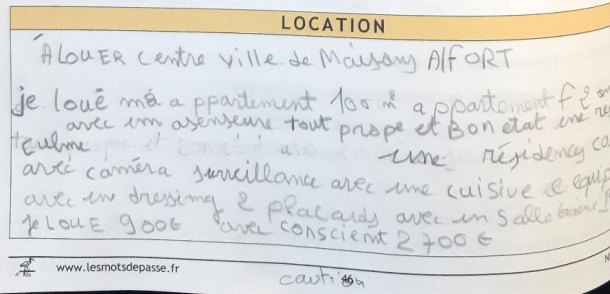 LOCATION
À LOUER centre ville de Maisons AlFORT
je loué má appartement 100 m² appartement F2
avec un asenseure tout prope et Bon état une
calme une résidency ca
avéc caméra surveillance avec une cuisive equip
avec un dressing 2 placards avec un Salle bains
je LOUE 900€ avec conscient 2700€
www.lesmotsdepasse.fr
caution